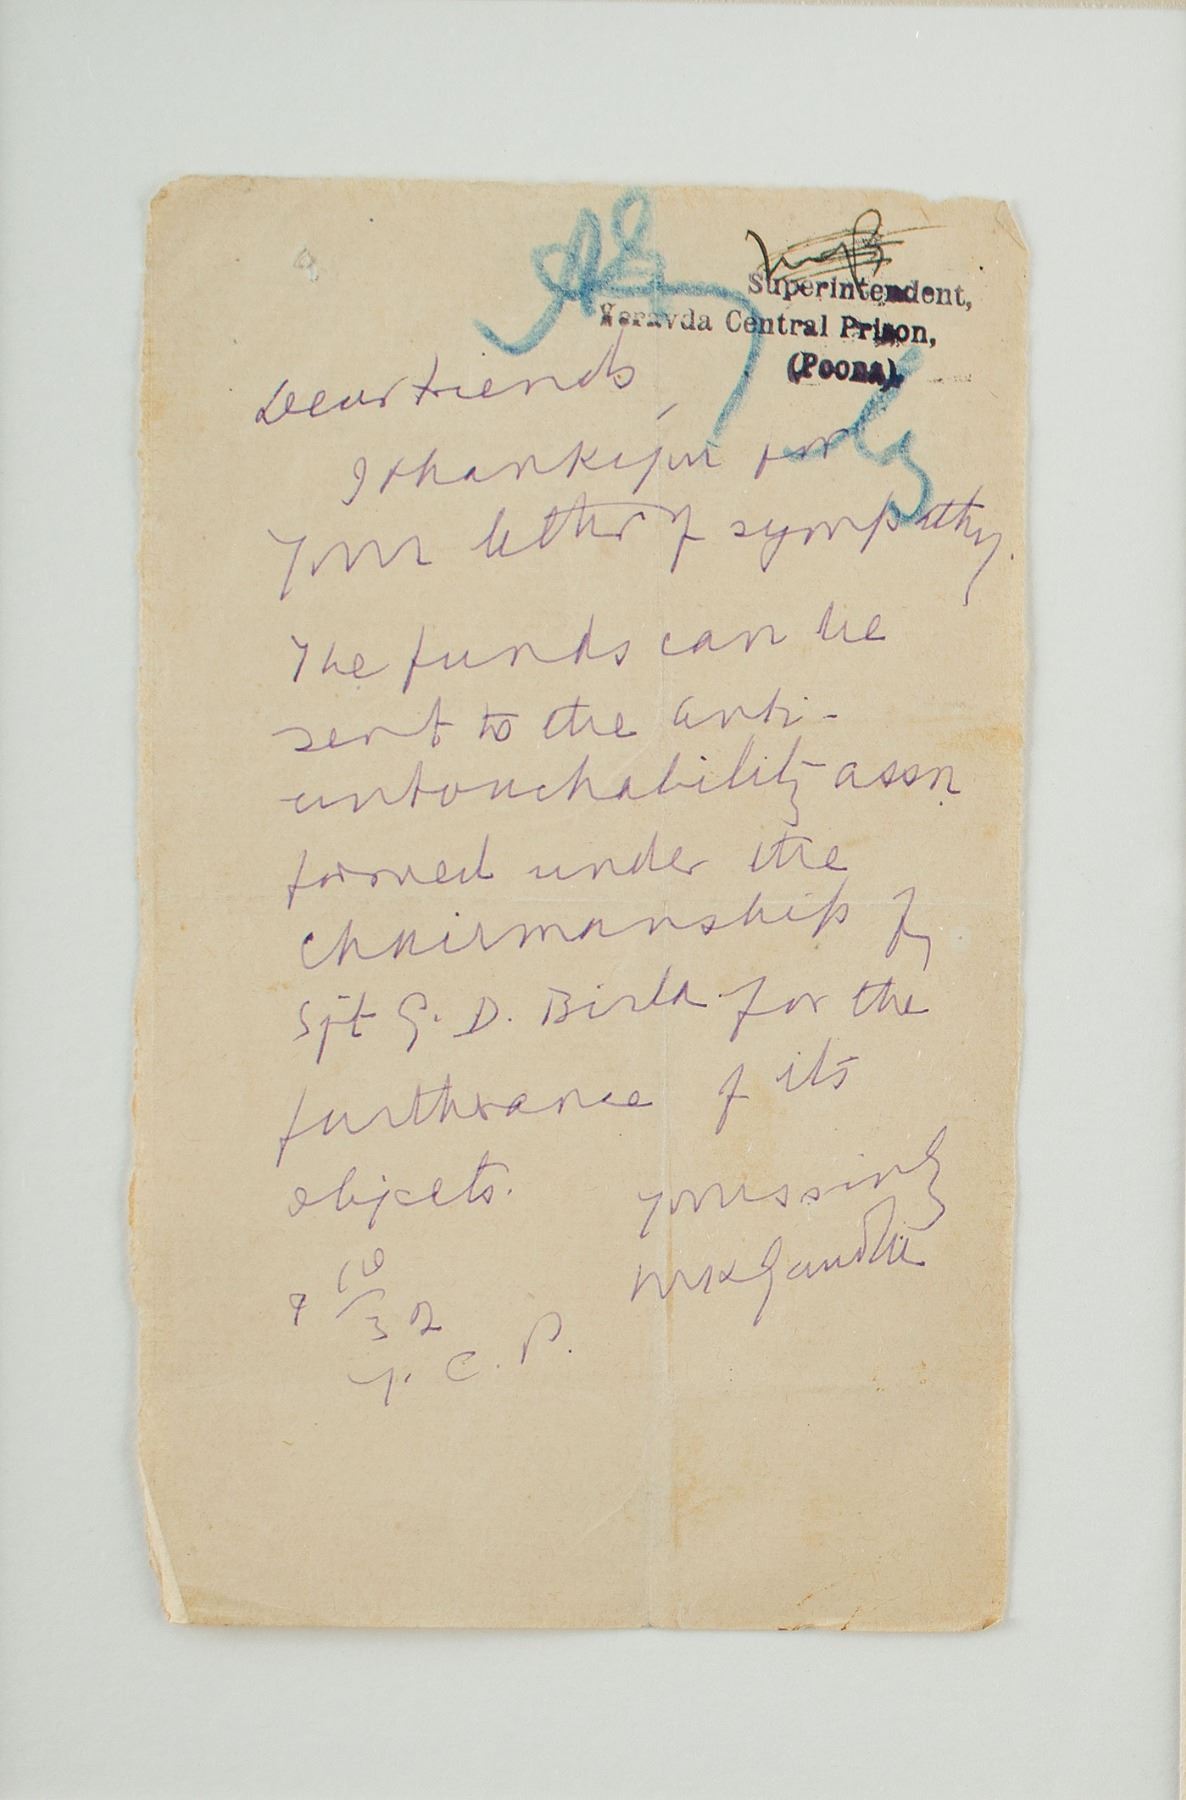 Superintendent,
Yeravda Central Prison,
(Poona).
Dear friends,
I thank you for
your letter of sympathy.
The funds can be
sent to the anti-
untouchability assn
formed under the
chairmanship of
Sjt G. D. Birla for the
furtherance of its
objects.
Yours sincly
MKGandhi
9 10/32
Y. C. P.